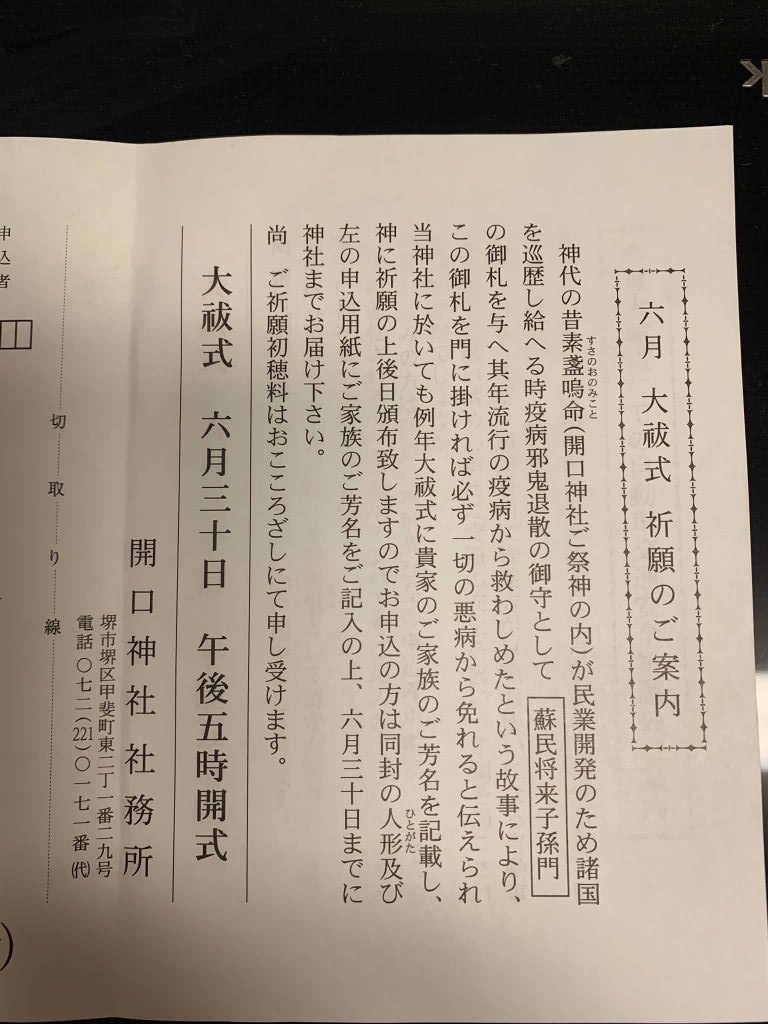 六月 大祓式 祈願のご案内
神代の昔素盞嗚命(開口神社ご祭神の内)が民業開発のため諸国
すさのおのみこと
を巡歴し給へる時疫病邪鬼退散の御守として 蘇民将来子孫門
の御札を与へ其年流行の疫病から救わしめたという故事により、
この御札を門に掛ければ必ず一切の悪病から免れると伝えられ
当神社に於いても例年大祓式に貴家のご家族のご芳名を記載し、
神に祈願の上後日頒布致しますのでお申込の方は同封の人形及び
ひとがた
左の申込用紙にご家族のご芳名をご記入の上、六月三十日までに
神社までお届け下さい。
尚 ご祈願初穂料はおこころざしにて申し受けます。
大祓式 六月三十日 午後五時開式
開口神社社務所
堺市堺区甲斐町東二丁一番二九号
電話 〇七二(221)〇一七一番(代)
切取り線
申込者
K